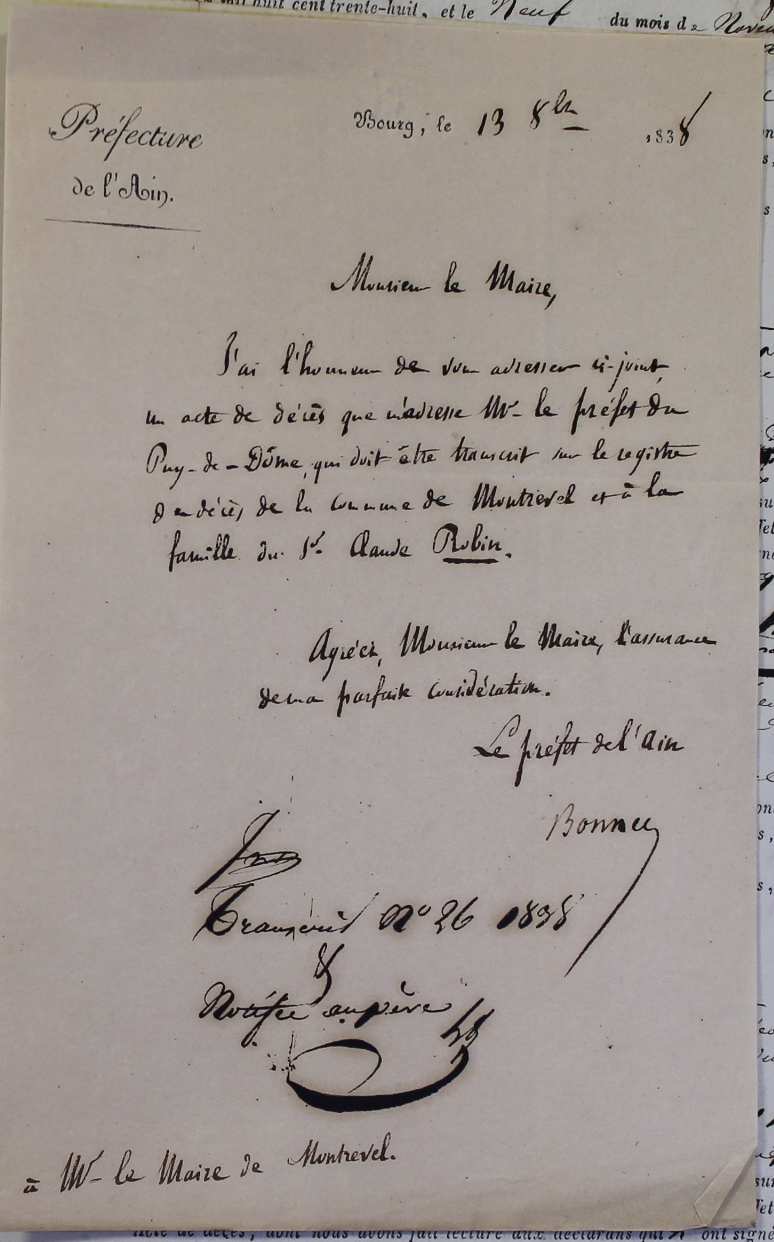 huit cent trente-huit, et le Neuf du mois de
Préfecture
de l'Ain.
Bourg, le 13 8bre 1838
Monsieur le Maire,
J'ai l'honneur de vous adresser ci-joint,
un acte de décès que m'adresse Mr le préfet du
Puy-de-Dôme, qui doit être transcrit sur le registre
des décès de la commune de Montrevel et à la
famille du Sr. Claude Robin.
Agréez, Monsieur le Maire, l'assurance
de ma parfaite considération.
Le préfet de l'Ain
Transcrit No 26 1838
&
Notifié au père
à Mr le Maire de Montrevel.
dont nous avons fait lecture aux déclarans qui ont signé